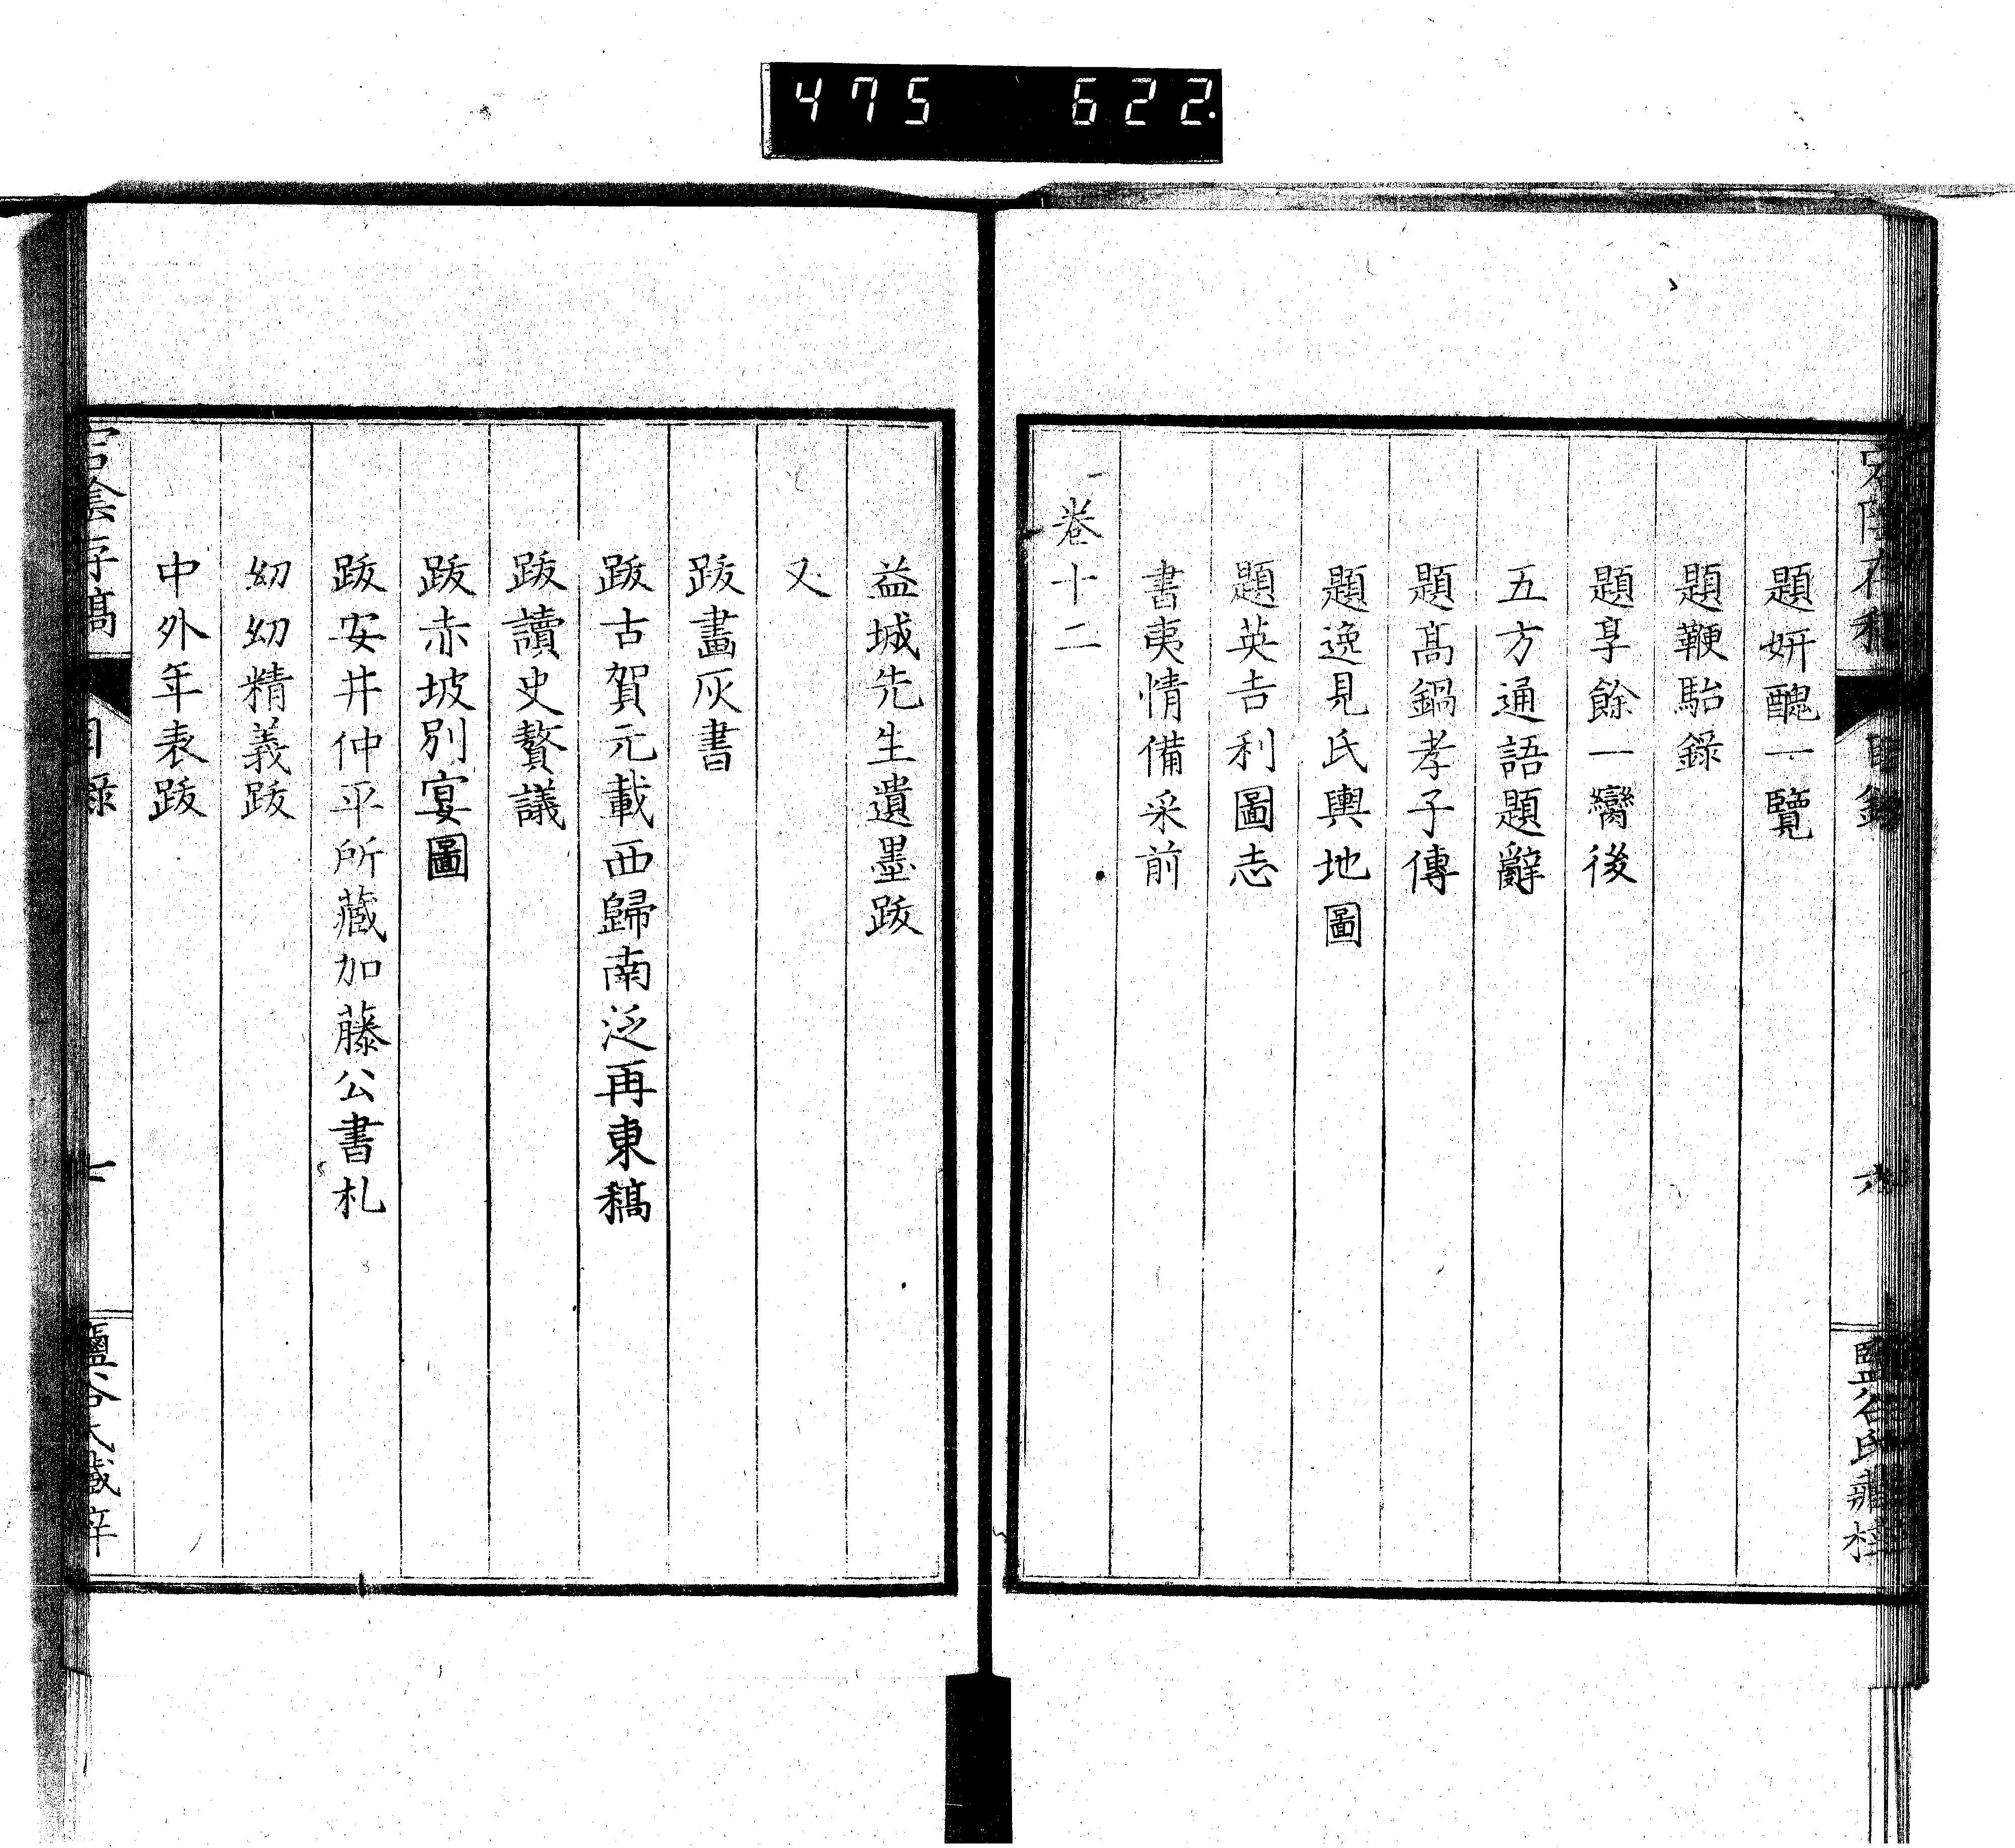 475 622.
宕陰存稿 目錄 九 鹽谷氏藏梓
題妍醜一覽
題鞭駘錄
題享餘一臠後
五方通語題辭
題高鍋孝子傳
題逸見氏輿地圖
題英吉利圖志
書夷情備采前
卷十二
益城先生遺墨跋
又
跋畫灰書
跋古賀元載西歸南泛再東稿
跋讀史贅議
跋赤坡別宴圖
跋安井仲平所藏加藤公書札
幼幼精義跋
中外年表跋
宕陰存稿 目錄 十 鹽谷氏藏梓